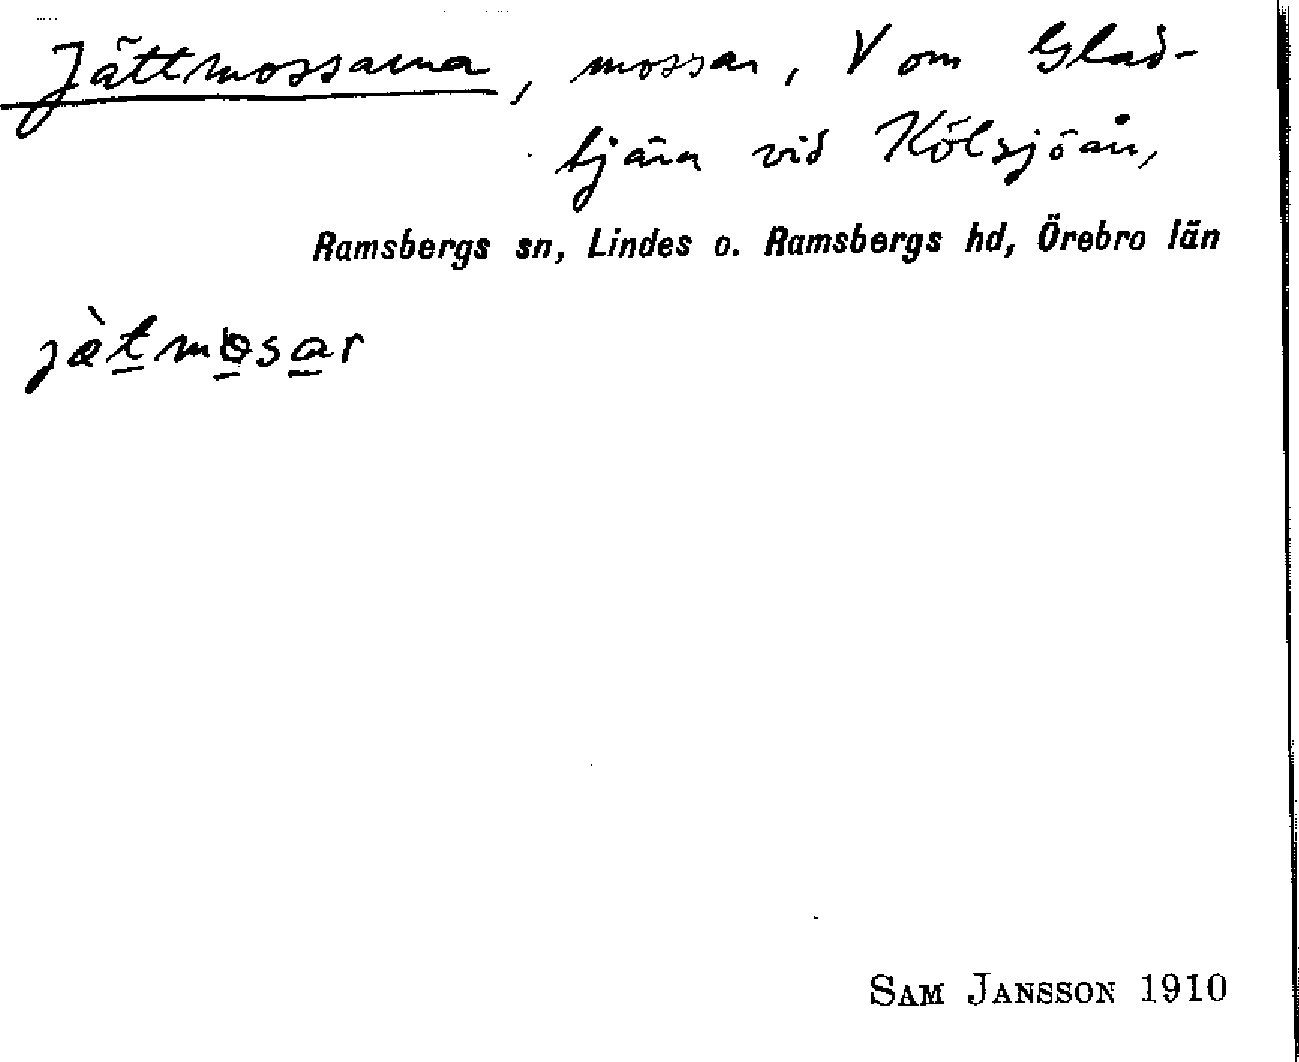 Jättmossarna, mossar, V om Glad-
tjärn vid Kölsjöån,
Ramsbergs sn, Lindes o. Ramsbergs hd, Örebro län
jὰtmosar
SAM JANSSON 1910